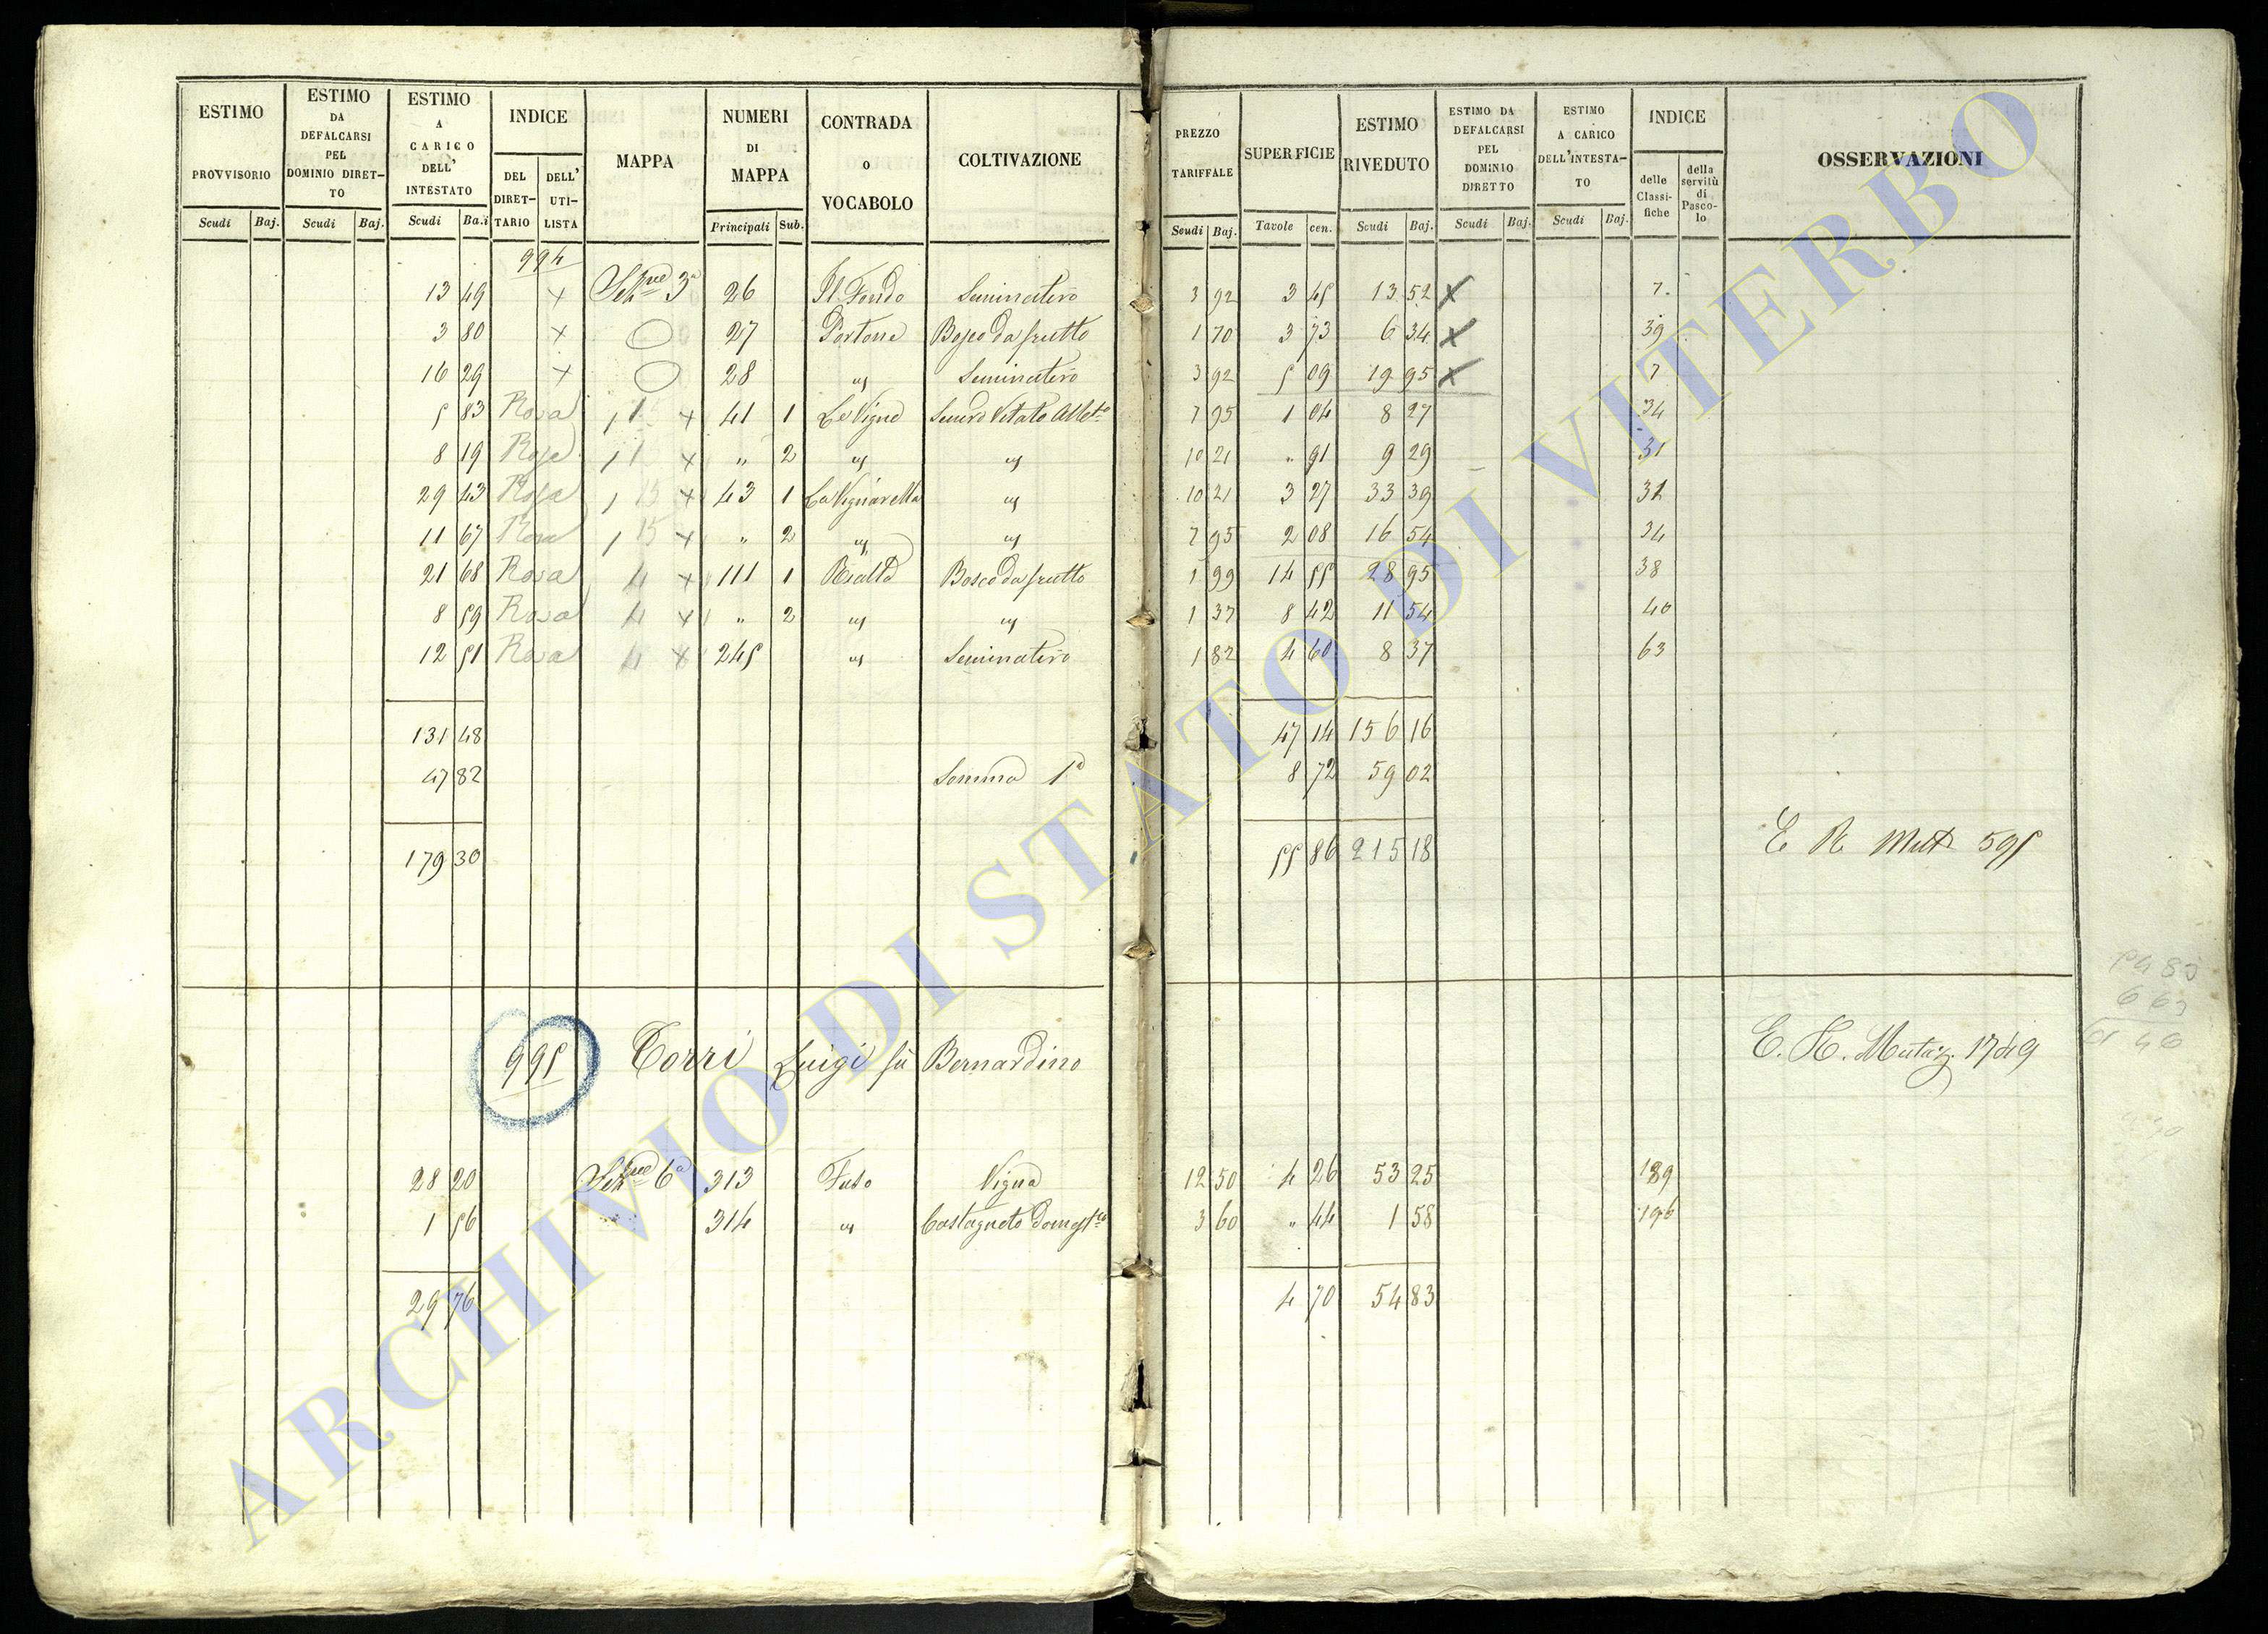 ESTIMO PROVVISORIO Scudi Baj.
ESTIMO DA DEFALCARSI PEL DOMINIO DIRET-TO Scudi Baj.
ESTIMO A CARICO DELL' INTESTATO Scudi Ba.i
INDICE DEL DIRET-TARIO DELL' UTI-LISTA
MAPPA
NUMERI DI MAPPA Principali Sub.
CONTRADA o VOCABOLO
COLTIVAZIONE
PREZZO TARIFFALE Scudi Baj.
SUPERFICIE Tavole cen.
ESTIMO RIVEDUTO Scudi Baj.
ESTIMO DA DEFALCARSI PEL DOMINIO DIRETTO Scudi Baj.
ESTIMO A CARICO DELL'INTESTA-TO Scudi Baj.
INDICE delle Classi-fiche della servitù di Pasco-lo
OSSERVAZIONI
994
13 49 x Sezne 3a 26 Il Fondo Seminativo 3 92 3 45 13 52 x 7.
3 80 x 27 Portone Bosco da frutto 1 70 3 73 6 34 x 39
16 29 x 28 " Seminativo 3 92 5 09 19 95 x 7
5 83 Rosa 1 x 41 1 Le Vigne Semvo Vitato Allbto 7 95 1 04 8 27 34
8 19 Rosa 1 x " 2 " " 10 21 " 91 9 29 31
29 43 Rosa 15 x 43 1 La Vignarella " 10 21 3 27 33 39 31
11 67 Rosa 15 x " 2 " " 7 95 2 08 16 54 34
21 68 Rosa 4 x 111 1 Rialto Bosco da frutto 1 99 14 55 28 95 38
8 59 Rosa 4 x " 2 " " 1 37 8 42 11 54 40
12 51 Rosa 4 x 245 " Seminativo 1 82 4 60 8 37 63
131 48 47 14 156 16
47 82 Somma 1a 8 72 59 02
179 30 55 86 215 18 E R Mut 595
995 Torri Luigi fu Bernardino E. R. Mutaz. 1749
28 20 Sezne 6a 313 Fuso Vigna 12 50 4 26 53 25 189
1 56 314 " Castagneto domestco 3 60 " 44 1 58 196
29 76 4 70 54 83
ARCHIVIO DI STATO DI VITERBO